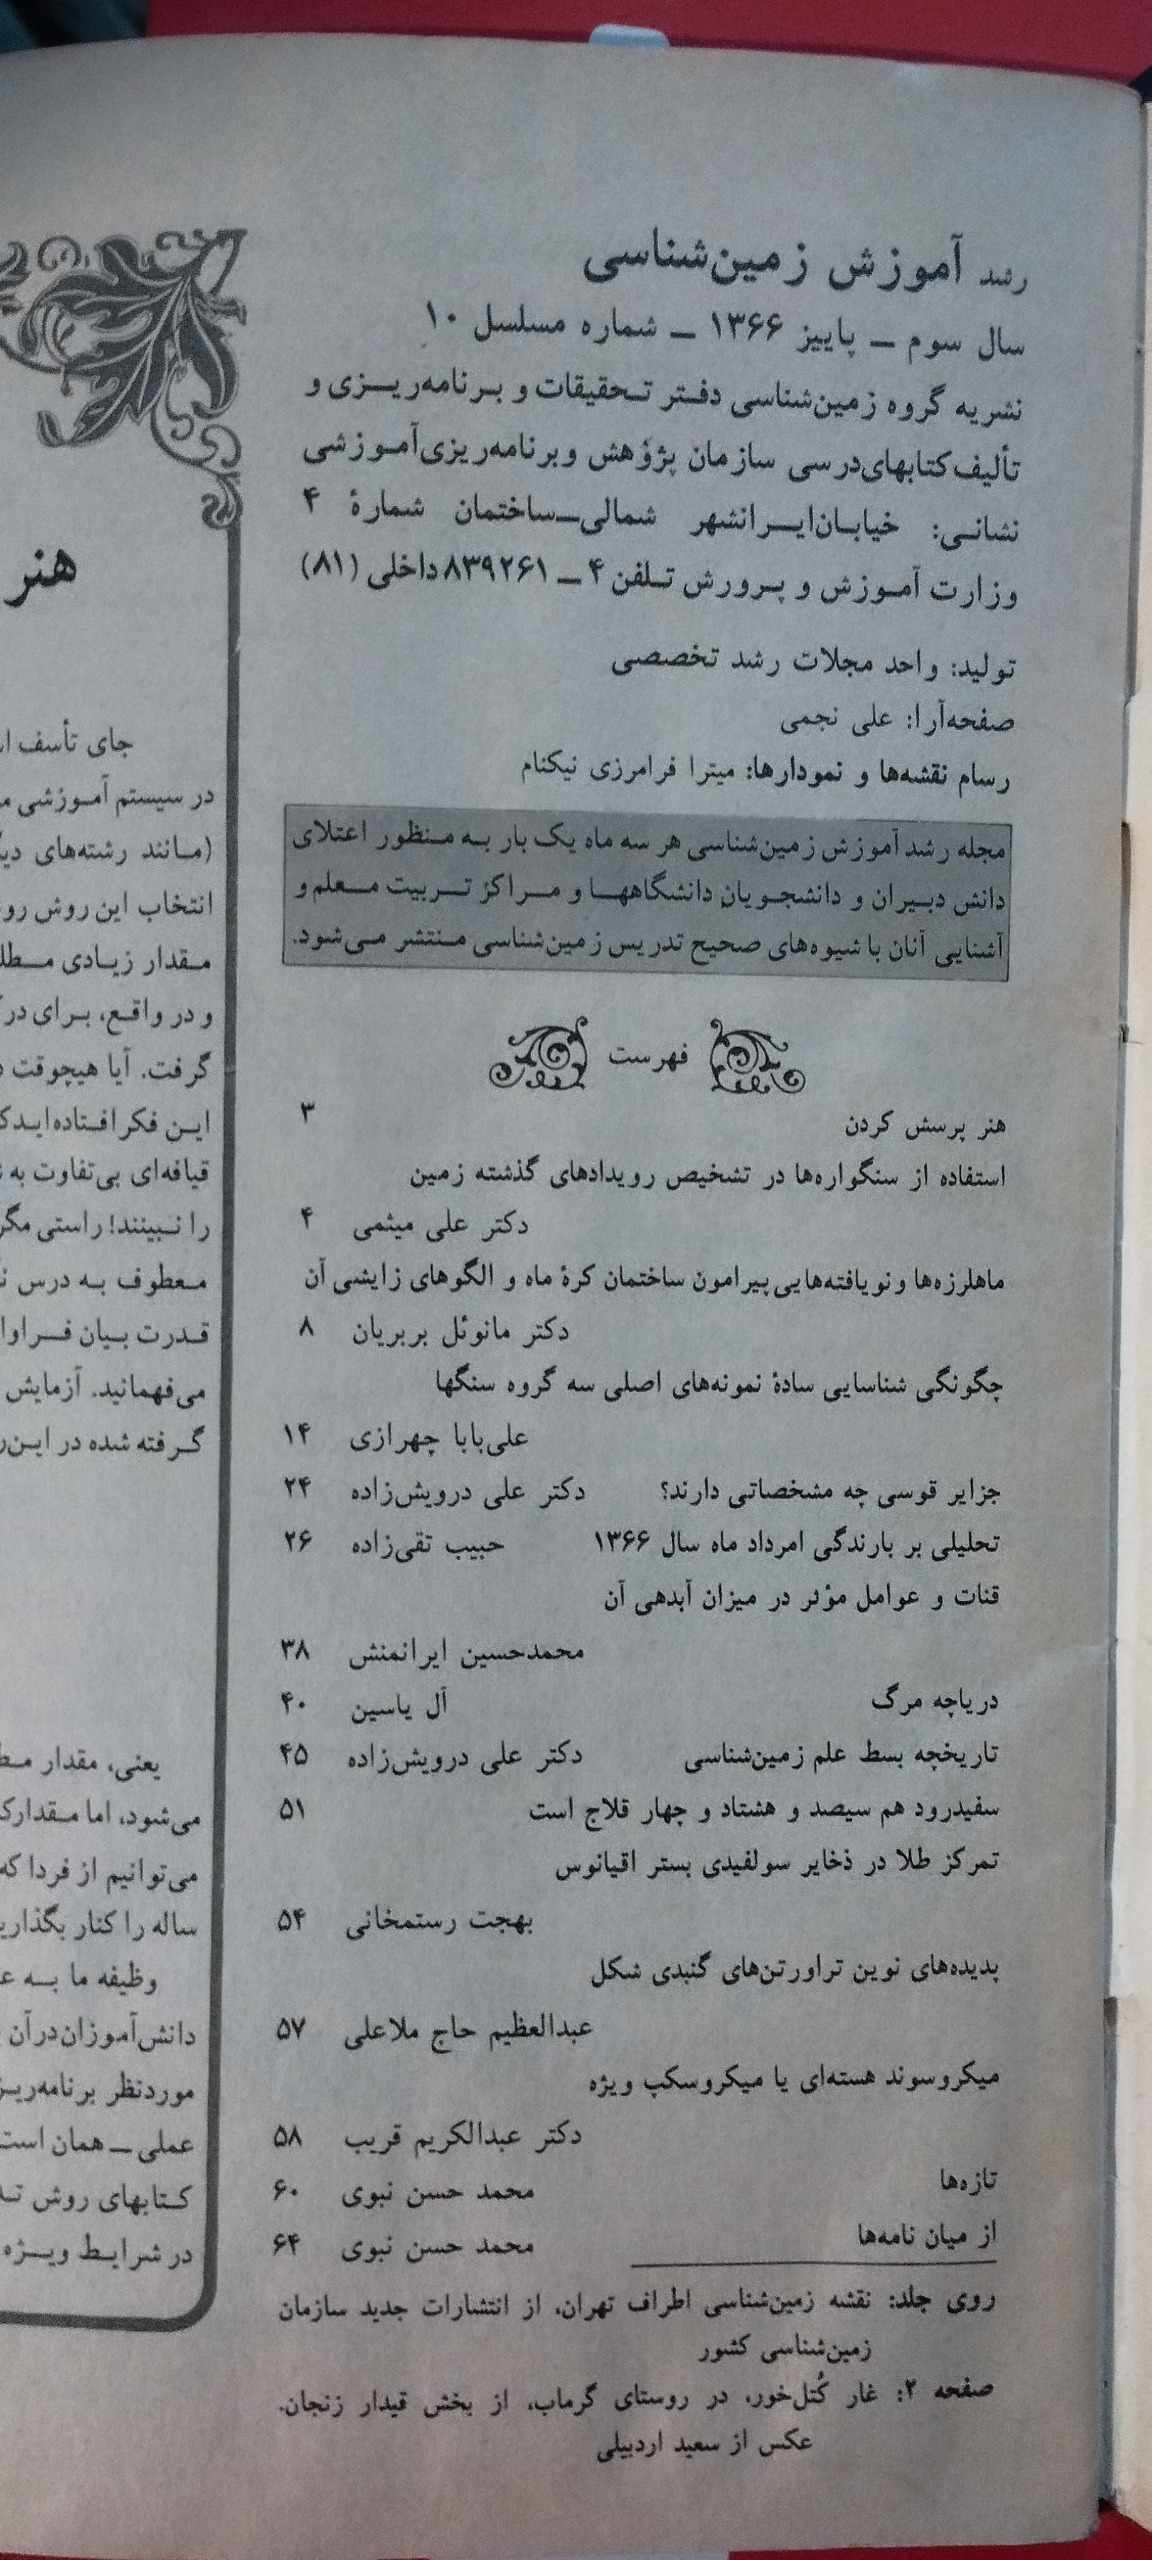 رشد آموزش زمین‌شناسی
سال سوم ــ پاییز ۱۳۶۶ ــ شماره مسلسل ۱۰
نشریه گروه زمین‌شناسی دفتر تحقیقات و برنامه‌ریزی و
تألیف کتابهای درسی سازمان پژوهش و برنامه‌ریزی آموزشی
نشانی: خیابان ایرانشهر شمالی ــ ساختمان شمارهٔ ۴
وزارت آموزش و پرورش تلفن ۴ ــ ۸۳۹۲۶۱ داخلی (۸۱)
تولید: واحد مجلات رشد تخصصی
صفحه‌آرا: علی نجمی
رسام نقشه‌ها و نمودارها: میترا فرامرزی نیکنام
مجله رشد آموزش زمین‌شناسی هر سه ماه یک بار به منظور اعتلای
دانش دبیران و دانشجویان دانشگاهها و مراکز تربیت معلم و
آشنایی آنان با شیوه‌های صحیح تدریس زمین‌شناسی منتشر می‌شود.
فهرست
هنر پرسش کردن ۳
استفاده از سنگواره‌ها در تشخیص رویدادهای گذشته زمین
دکتر علی میثمی ۴
ماهلرزه‌ها و نویافته‌هایی پیرامون ساختمان کرهٔ ماه و الگوهای زایشی آن
دکتر مانوئل بربریان ۸
چگونگی شناسایی سادهٔ نمونه‌های اصلی سه گروه سنگها
علی‌بابا چهرازی ۱۴
جزایر قوسی چه مشخصاتی دارند؟ دکتر علی درویش‌زاده ۲۴
تحلیلی بر بارندگی امرداد ماه سال ۱۳۶۶ حبیب تقی‌زاده ۲۶
قنات و عوامل مؤثر در میزان آبدهی آن
محمدحسین ایرانمنش ۳۸
دریاچه مرگ آل یاسین ۴۰
تاریخچه بسط علم زمین‌شناسی دکتر علی درویش‌زاده ۴۵
سفیدرود هم سیصد و هشتاد و چهار قلاج است ۵۱
تمرکز طلا در ذخایر سولفیدی بستر اقیانوس
بهجت رستمخانی ۵۴
پدیده‌های نوین تراورتن‌های گنبدی شکل
عبدالعظیم حاج ملاعلی ۵۷
میکروسوند هسته‌ای یا میکروسکپ ویژه
دکتر عبدالکریم قریب ۵۸
تازه‌ها محمد حسن نبوی ۶۰
از میان نامه‌ها محمد حسن نبوی ۶۴
روی جلد: نقشه زمین‌شناسی اطراف تهران، از انتشارات جدید سازمان
زمین‌شناسی کشور
صفحه ۲: غار کُتل‌خور، در روستای گرماب، از بخش قیدار زنجان.
عکس از سعید اردبیلی
هنر
جای تأسف
در سیستم آموزشی
(مانند رشته‌های
انتخاب این روش
مقدار زیادی
و در واقع، برای
گرفت. آیا هیچوقت
این فکر افتاده‌اید
قیافه‌ای بی‌تفاوت به
را نبینند! راستی
معطوف به درس
قدرت بیان
می‌فهمانید. آزمایش
گرفته شده در
یعنی، مقدار
می‌شود، اما
می‌توانیم از فردا که
ساله را کنار
وظیفه ما به
دانش‌آموزان در آن
موردنظر
عملی ــ همان است
کتابهای روش
در شرایط ویژه